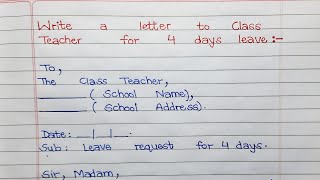 Write a letter to Class
Teacher for 4 days leave:-
To,
The Class Teacher,
________ ( School Name),
________ ( School Address).
Date: __|__|__.
Sub: Leave request for 4 days.
Sir, Madam,